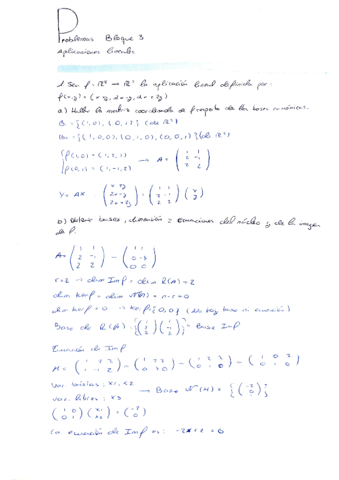 Problemas Bloque 3
Aplicaciones lineales
1. Sea f: R² → R³ la aplicación lineal definida por:
f(x,y) = (x+y, 2x-y, 2x+2y)
a) Halla la matriz coordenada de f respecto de las bases canónicas.
B = {(1,0), (0,1)} (de R²)
= {(1,0,0), (0,1,0), (0,0,1)} (de R³)
f(1,0) = (1,2,2) → A = (1 1
f(0,1) = (1,-1,2) 2 -1
2 2)
Y = AX (x+y 2x-y 2x+2y) = (1 1 2 -1 2 2) (x y)
b) Obtener bases, dimensión y ecuaciones del núcleo y de la imagen
de f.
A = (1 1 2 -1 2 2) ~ (1 1 0 -3 0 0)
r=2 → dim Imf = dim R(A) = 2
dim Kerf = dim N(A) = n-r = 0
dim Kerf = 0 → Kerf {0,0} (No hay base ni ecuación)
Base de R(A) = {(1 2 2) (1 -1 2)} = Base Imf
Ecuación de Imf
var. básicas: x1, x2 → Base N(M) = {(-2 0 1)}
var. libres: x3
(1 0 0 1) (x1 x2) = (-2 0)
La ecuación de Imf es: -2x+z=0